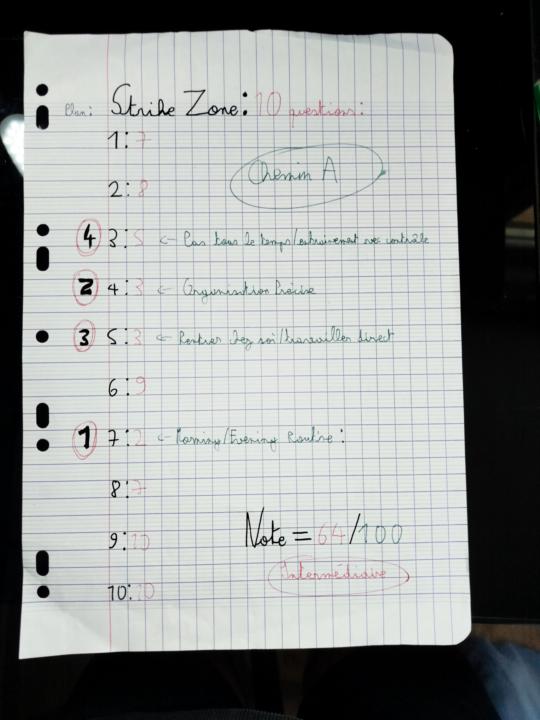 Plan: Strike Zone: 10 questions:
1: 7
Chemin A
2: 8
4 3: 5 <- Pas tous le temps/entrainement avec contrôle
2 4: 3 <- Organisation Précise
3 5: 3 <- Rentrer chez soi/travailler direct
6: 9
1 7: 2 <- Morning/Evening Routine:
8: 7
Note = 64/100
9: 10
Intermédiaire
10: 10